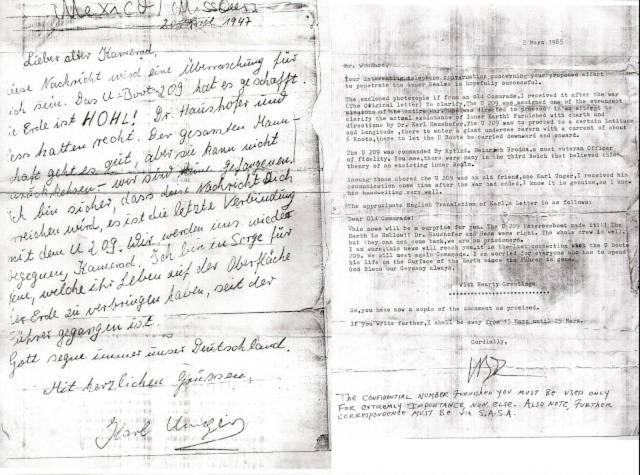 Mexico / Missouri
1947
Lieber alter Kamerad,
diese Nachricht wird eine Überraschung für
ich sein. Das U-Boot 209 hat es geschafft.
ie Erde ist HOHL! Dr. Haushofer und
ess hatten recht. Der gesamten Mann-
haft geht es gut, aber sie kann nicht
wir sind Gefangenen.
ch bin sicher, dass diese Nachricht Dich
reichen wird, es ist die letzte Verbindung
mit dem U 209. Wir werden uns wieder
begegnen, Kamerad. Ich bin in Sorge für
welche ihr Leben auf der Oberfläche
der Erde zu verbringen haben, seit der
ührer gegangen ist.
Gott segne immer unser Deutschland.
Mit herzlichen Grüssen,
Karl Unger
2 Mars 1985
Mr.
Your interesting telephone conversation concerning your proposed effort
to penetrate the inner Realms is hopefully successful.
The enclosed photocopie if from an old Comerade, I received it after the war
(The Original letter) To clarify, The U 209 was assigned one of the strongest
clarify the actual existance of inner Earth Furnished with charts and
directions by Dr. Karl Haushofer, The U 209 was to proceed to a certain Latitude
and Longitude, there to enter a giant undersea cavern with a current of about
6 Knots, hope to let the U Boote be carried downward and onward.
The U 209 was commanded By Kptlnt. Heinrich Brodda, a most veteran Officer
of fidelity. You see, there were many in the Third Reich that believed this
theory of an existing inner Realm.
Among those abored the U 209 was an old friend, one Karl Unger, I received his
communication some time after the war had ended, I know it is genuine, as I knew
his handwriting very well.
The approximate English Translation of Karl,s letter is as follows:
Dear Old Comerade:
This news will be a surprise for you. The U 209 Unterseeboot made it!! The
Earth is Hollow!! Dr. Haushofer and Hess were right. The whole crew is well,
but they can not come back, we are no prisoners.
I am sure, this news will reach you, it is the last connection with the U boote
209. We will meet again Comerade. I am worried for everyone who has to spend
his life on the Surface of the Earth since the Fuhrer is gone.
God Bless our Germany always.
With Hearty Greetings
So, you have now a copie of the document as promised.
If you Write farther, I shall be away from 15 Mars until 25 Mars.
Cordially,
THE CONFIDENTIAL NUMBER FURNISHED YOU MUST BE USED ONLY
FOR EXTREMLY IMPORTANCE, NON ELSE. ALSO NOTE, FURTHER
CORRESPONDENCE MUST BE VIA S.A.S.A.